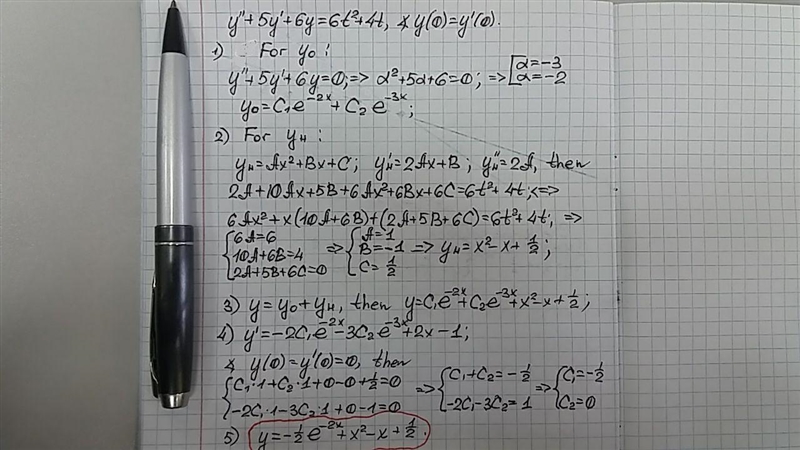 y''+5y'+6y=6t²+4t, ∡ y(0)=y'(0).
1) For y₀:
y''+5y'+6y=0; => α²+5α+6=0; => [α=-3
α=-2
y₀=C₁e^(-2x)+C₂e^(-3x);
2) For yₙ:
yₙ=Ax²+Bx+C; yₙ'=2Ax+B; yₙ''=2A, then
2A+10Ax+5B+6Ax²+6Bx+6C=6t²+4t; <=>
6Ax²+x(10A+6B)+(2A+5B+6C)=6t²+4t; =>
{6A=6
10A+6B=4
2A+5B+6C=0 => {A=1
B=-1
C=1/2 => yₙ=x²-x+1/2;
3) y=y₀+yₙ, then y=C₁e^(-2x)+C₂e^(-3x)+x²-x+1/2;
4) y'=-2C₁e^(-2x)-3C₂e^(-3x)+2x-1;
∡ y(0)=y'(0)=0, then
{C₁·1+C₂·1+0-0+1/2=0
-2C₁·1-3C₂·1+0-1=0 => {C₁+C₂=-1/2
-2C₁-3C₂=1 => {C₁=-1/2
C₂=0
5) y=-1/2e^(-2x)+x²-x+1/2.